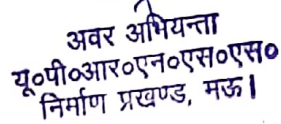 अवर अभियन्ता
यू०पी०आर०एन०एस०एस०
निर्माण प्रखण्ड, मऊ।